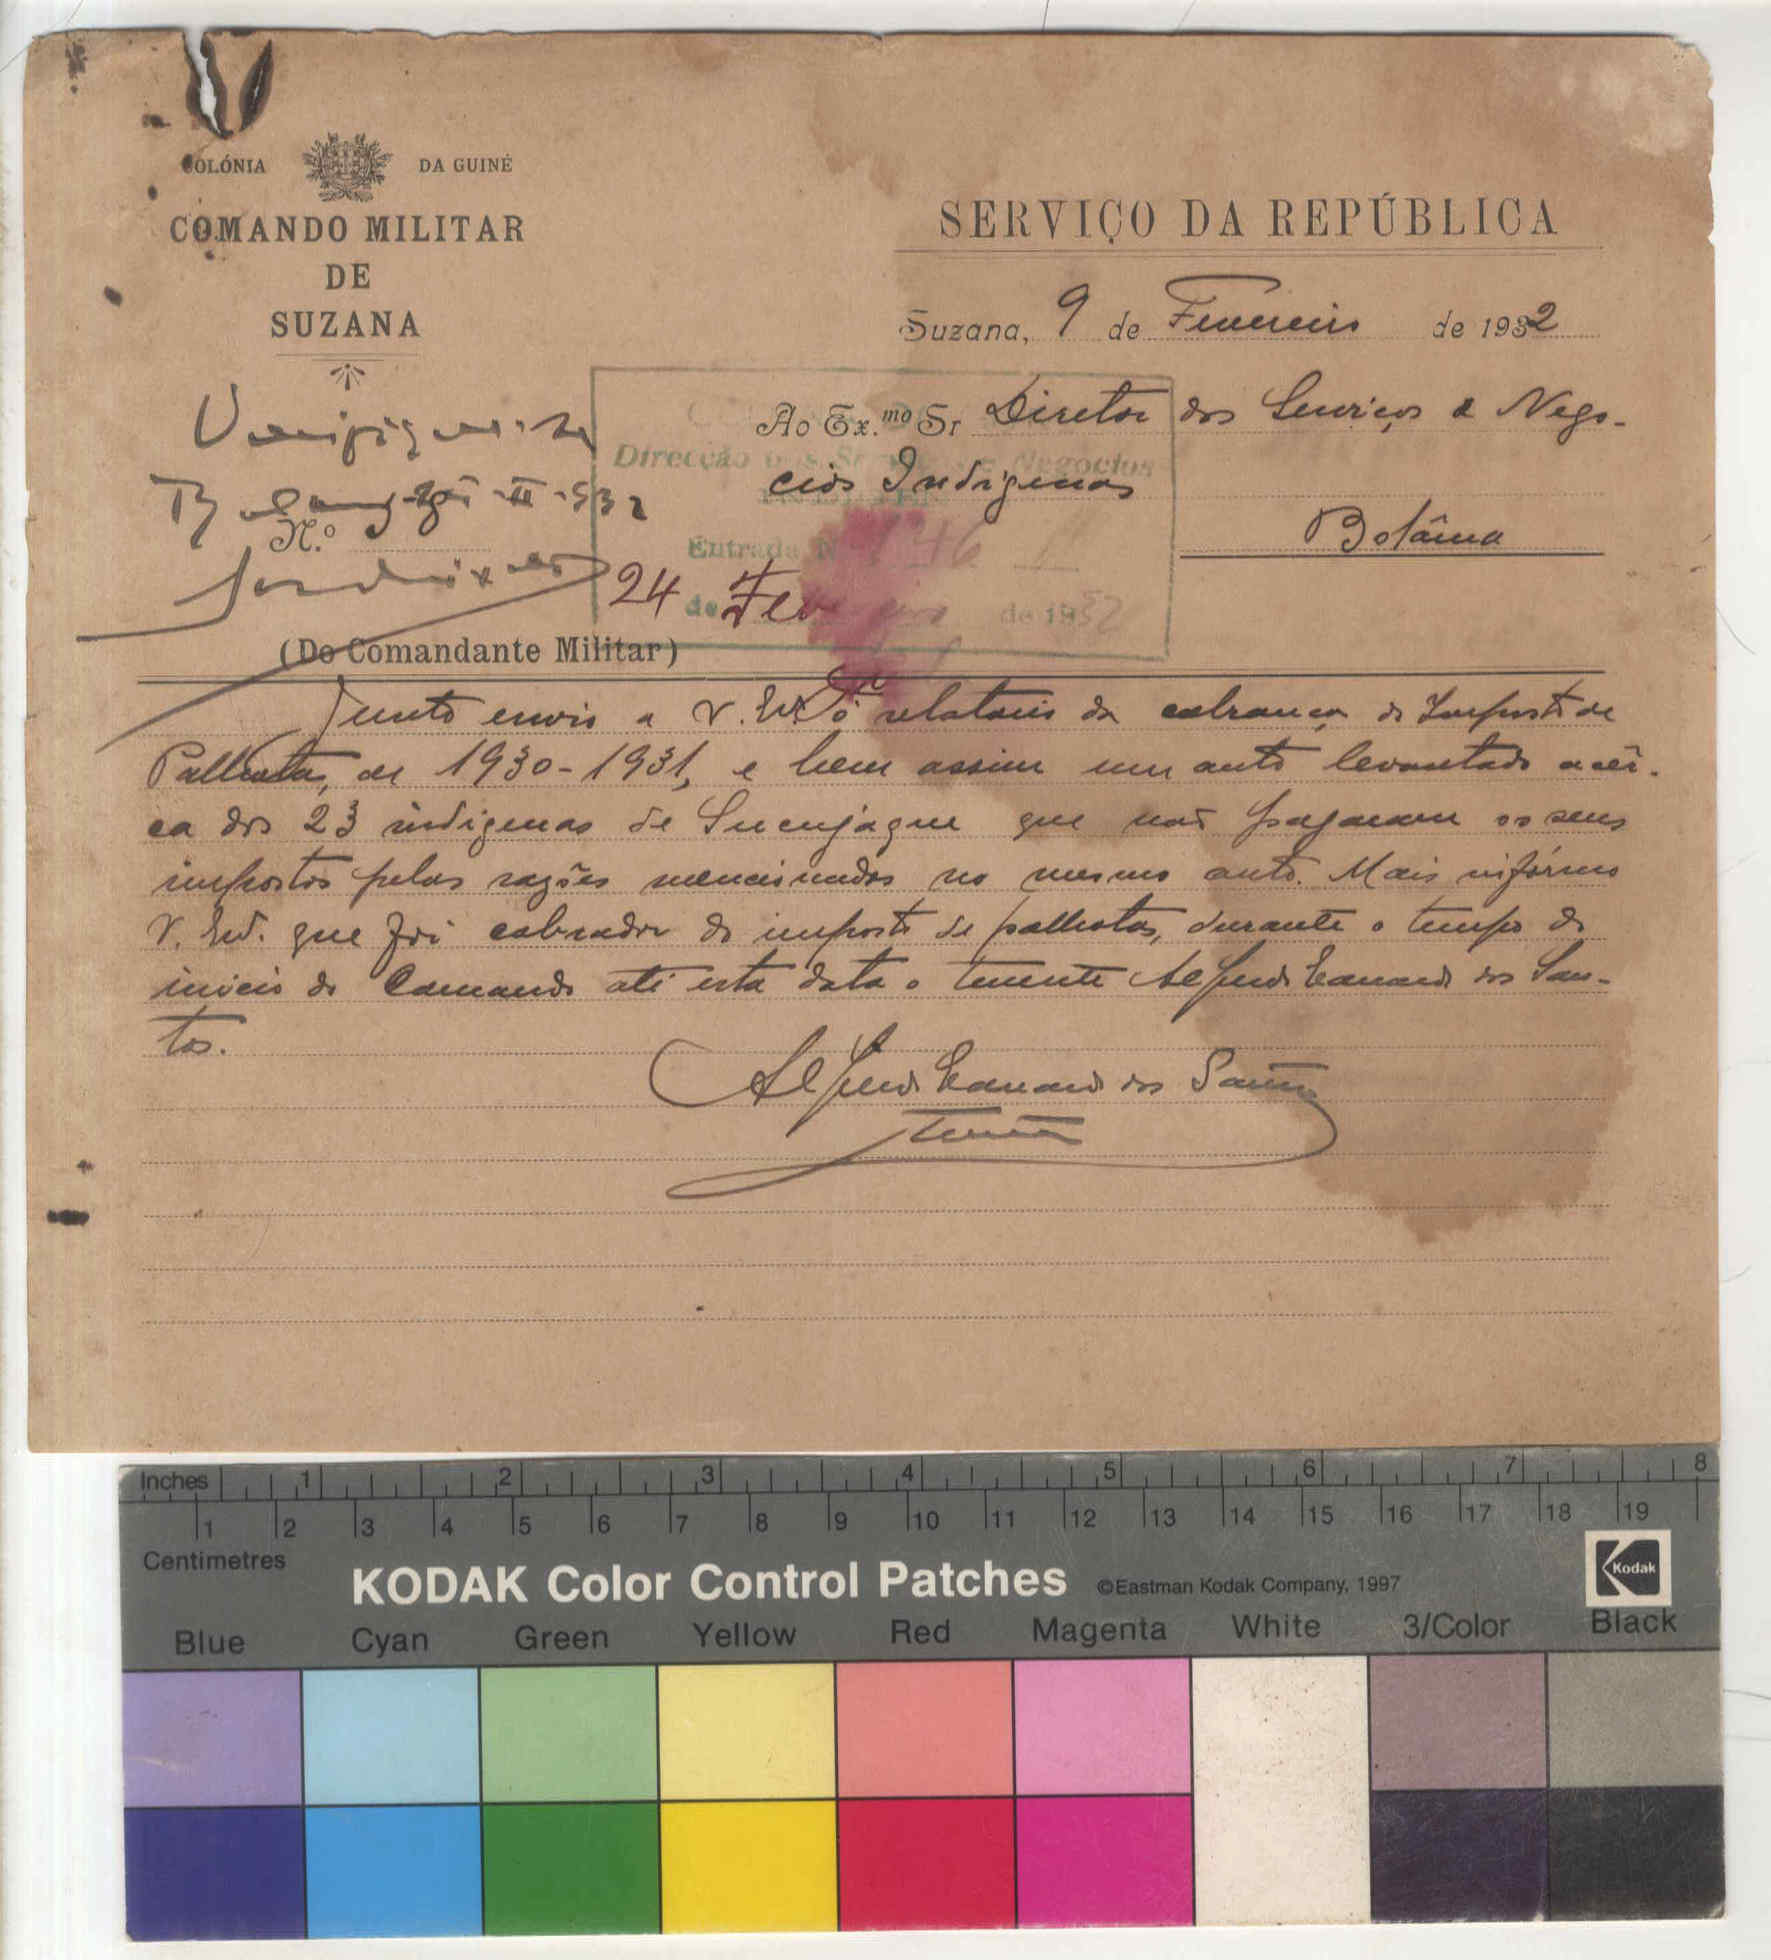 COLÓNIA DA GUINÉ
COMANDO MILITAR
DE
SUZANA
SERVIÇO DA REPÚBLICA
Suzana, 9 de Fevereiro de 1932
Ao Ex.mo Sr Diretor dos Serviços e Nego-
cios Indigenas
Bolâma
Direcção dos Serviços e Negocios
Entrada N
24 de Fevereiro de 1932
II-932
N.º
(Do Comandante Militar)
Junto envio a V. Exª o relatorio da cobrança do Imposto de
Palhota, de 1930-1931, e bem assim um auto levantado acêr-
ca dos 23 indigenas de Sucujaque que não pagaram os seus
impostos pelas razões mencionadas no mesmo auto. Mais infórmo
V. Exª. que foi cobrador do imposto de palhotas, durante o tempo do
inicio do Comando até esta data o tenente Alfredo Eduardo dos San-
tos.
Alfredo Eduardo dos Santos
Tenente
Inches 1 2 3 4 5 6 7 8
1 2 3 4 5 6 7 8 9 10 11 12 13 14 15 16 17 18 19
Centimetres
KODAK Color Control Patches ©Eastman Kodak Company, 1997 Kodak
Blue Cyan Green Yellow Red Magenta White 3/Color Black